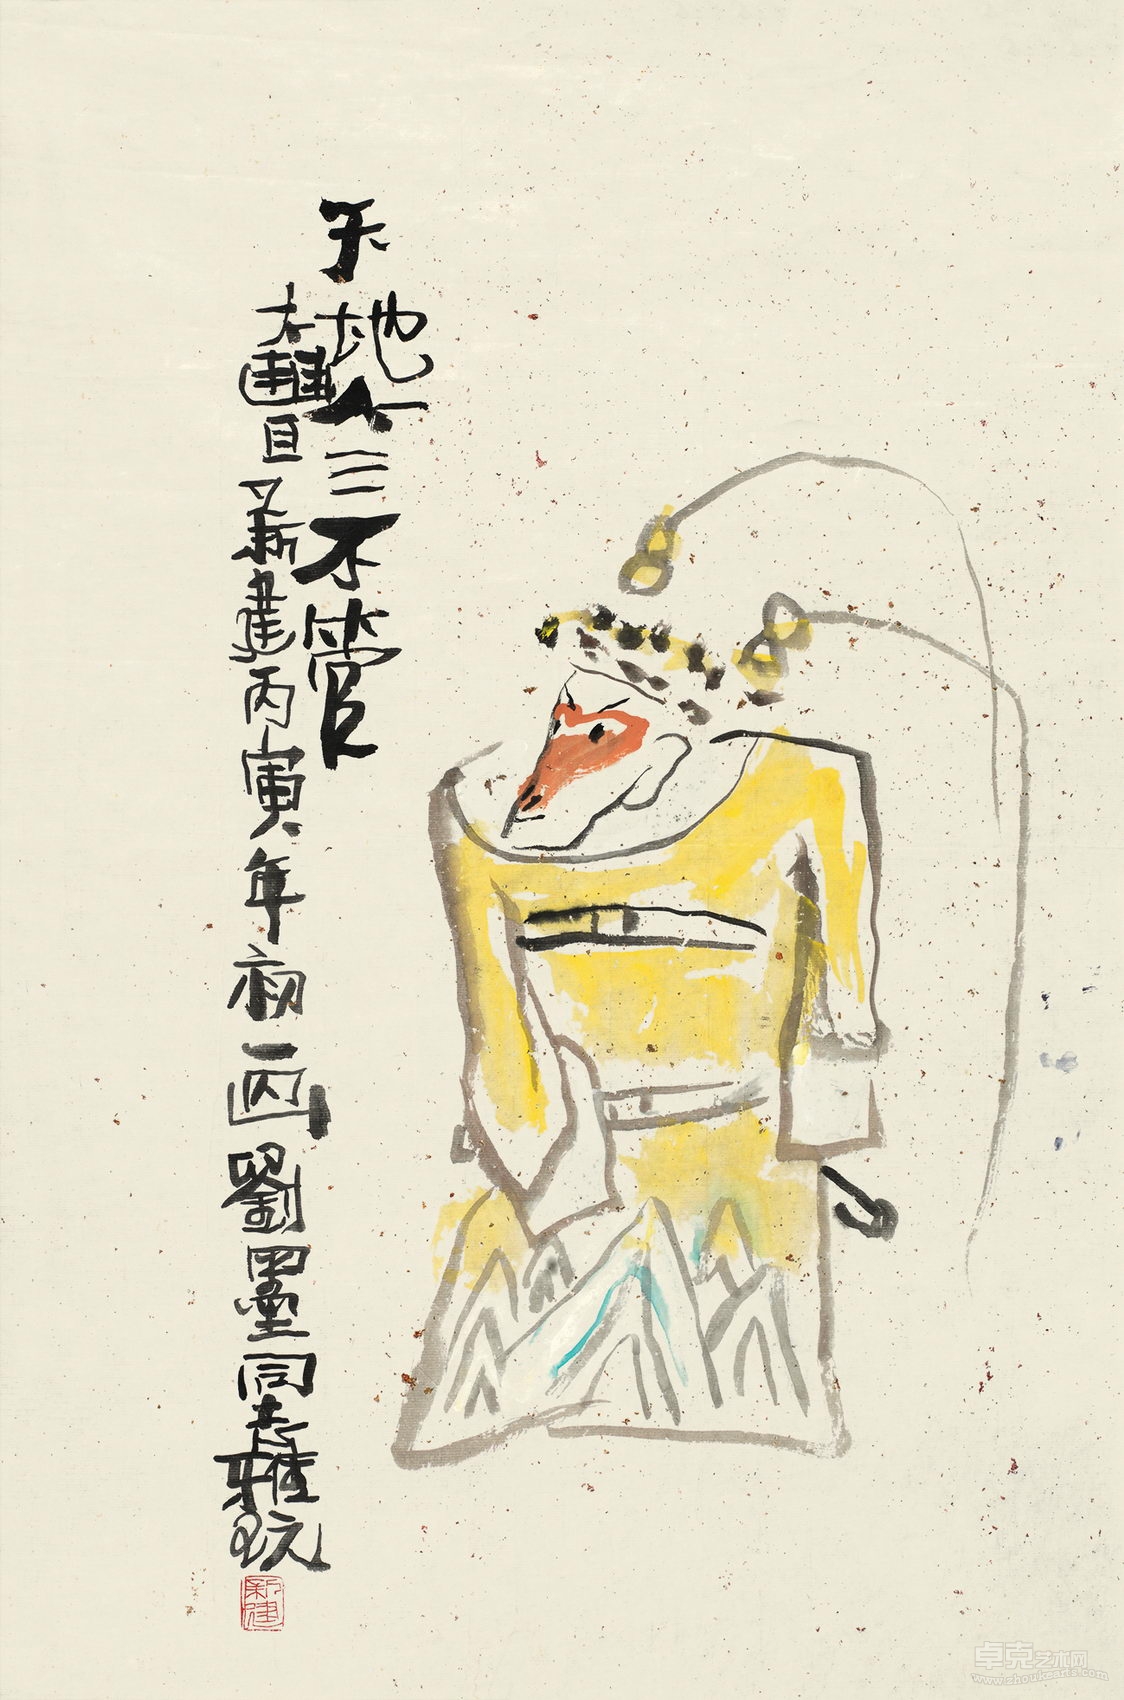 天地人三不管
大豐新建丙寅年初画劉墨同志雅玩
新建
卓克艺术网
www.zhoukearts.com